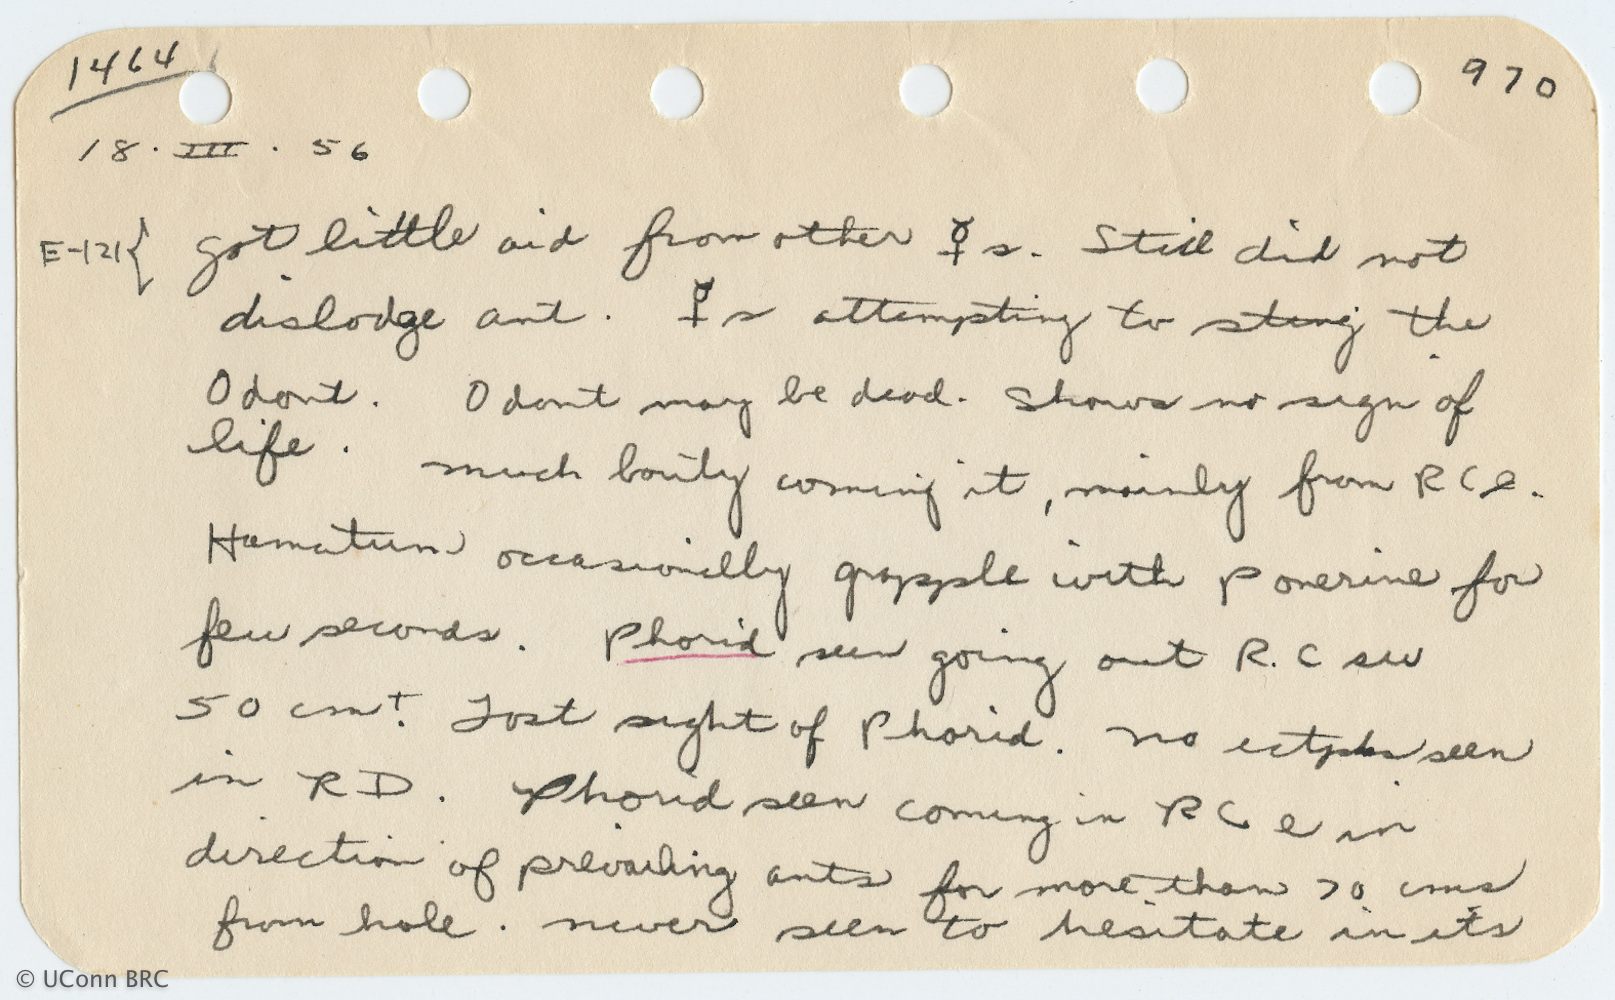 1464
970
18 · III · 56
E-121{ got little aid from other ☿s. Still did not
dislodge ant. ☿s attempting to sting the
Odont. Odont may be dead. Shows no sign of
life. much booty coming it, mainly from RCe.
Hamatum occasionally grapple with Ponerine for
few seconds. Phorid seen going out R.C sw
50 cm±. Lost sight of Phorid. No ectphs seen
in RD. Phorid seen coming in RCe in
direction of prevailing ants for more than 70 cms
from hole. never seen to hesitate in its
© UConn BRC